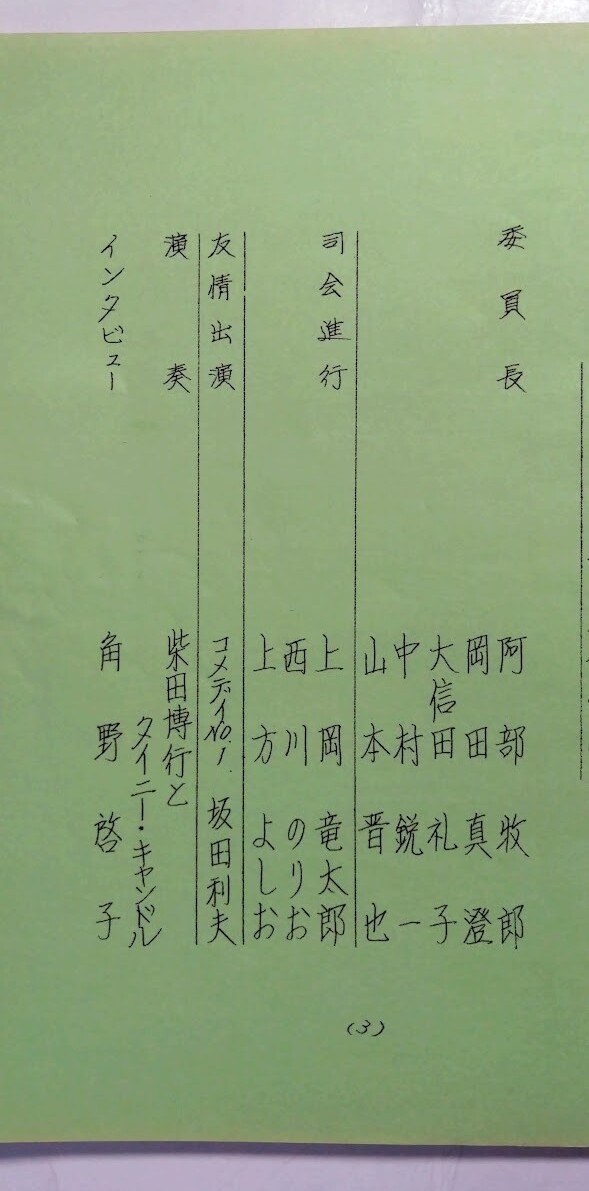 委員長 阿部牧郎
岡田真澄
大信田礼子
中村鋭一
山本晋也
司会進行 上岡竜太郎
西川のりお
上方よしお
友情出演 コメディNO.1 坂田利夫
演奏 柴田博行と
タイニー・キャンドル
インタビュー 角野啓子
(3)